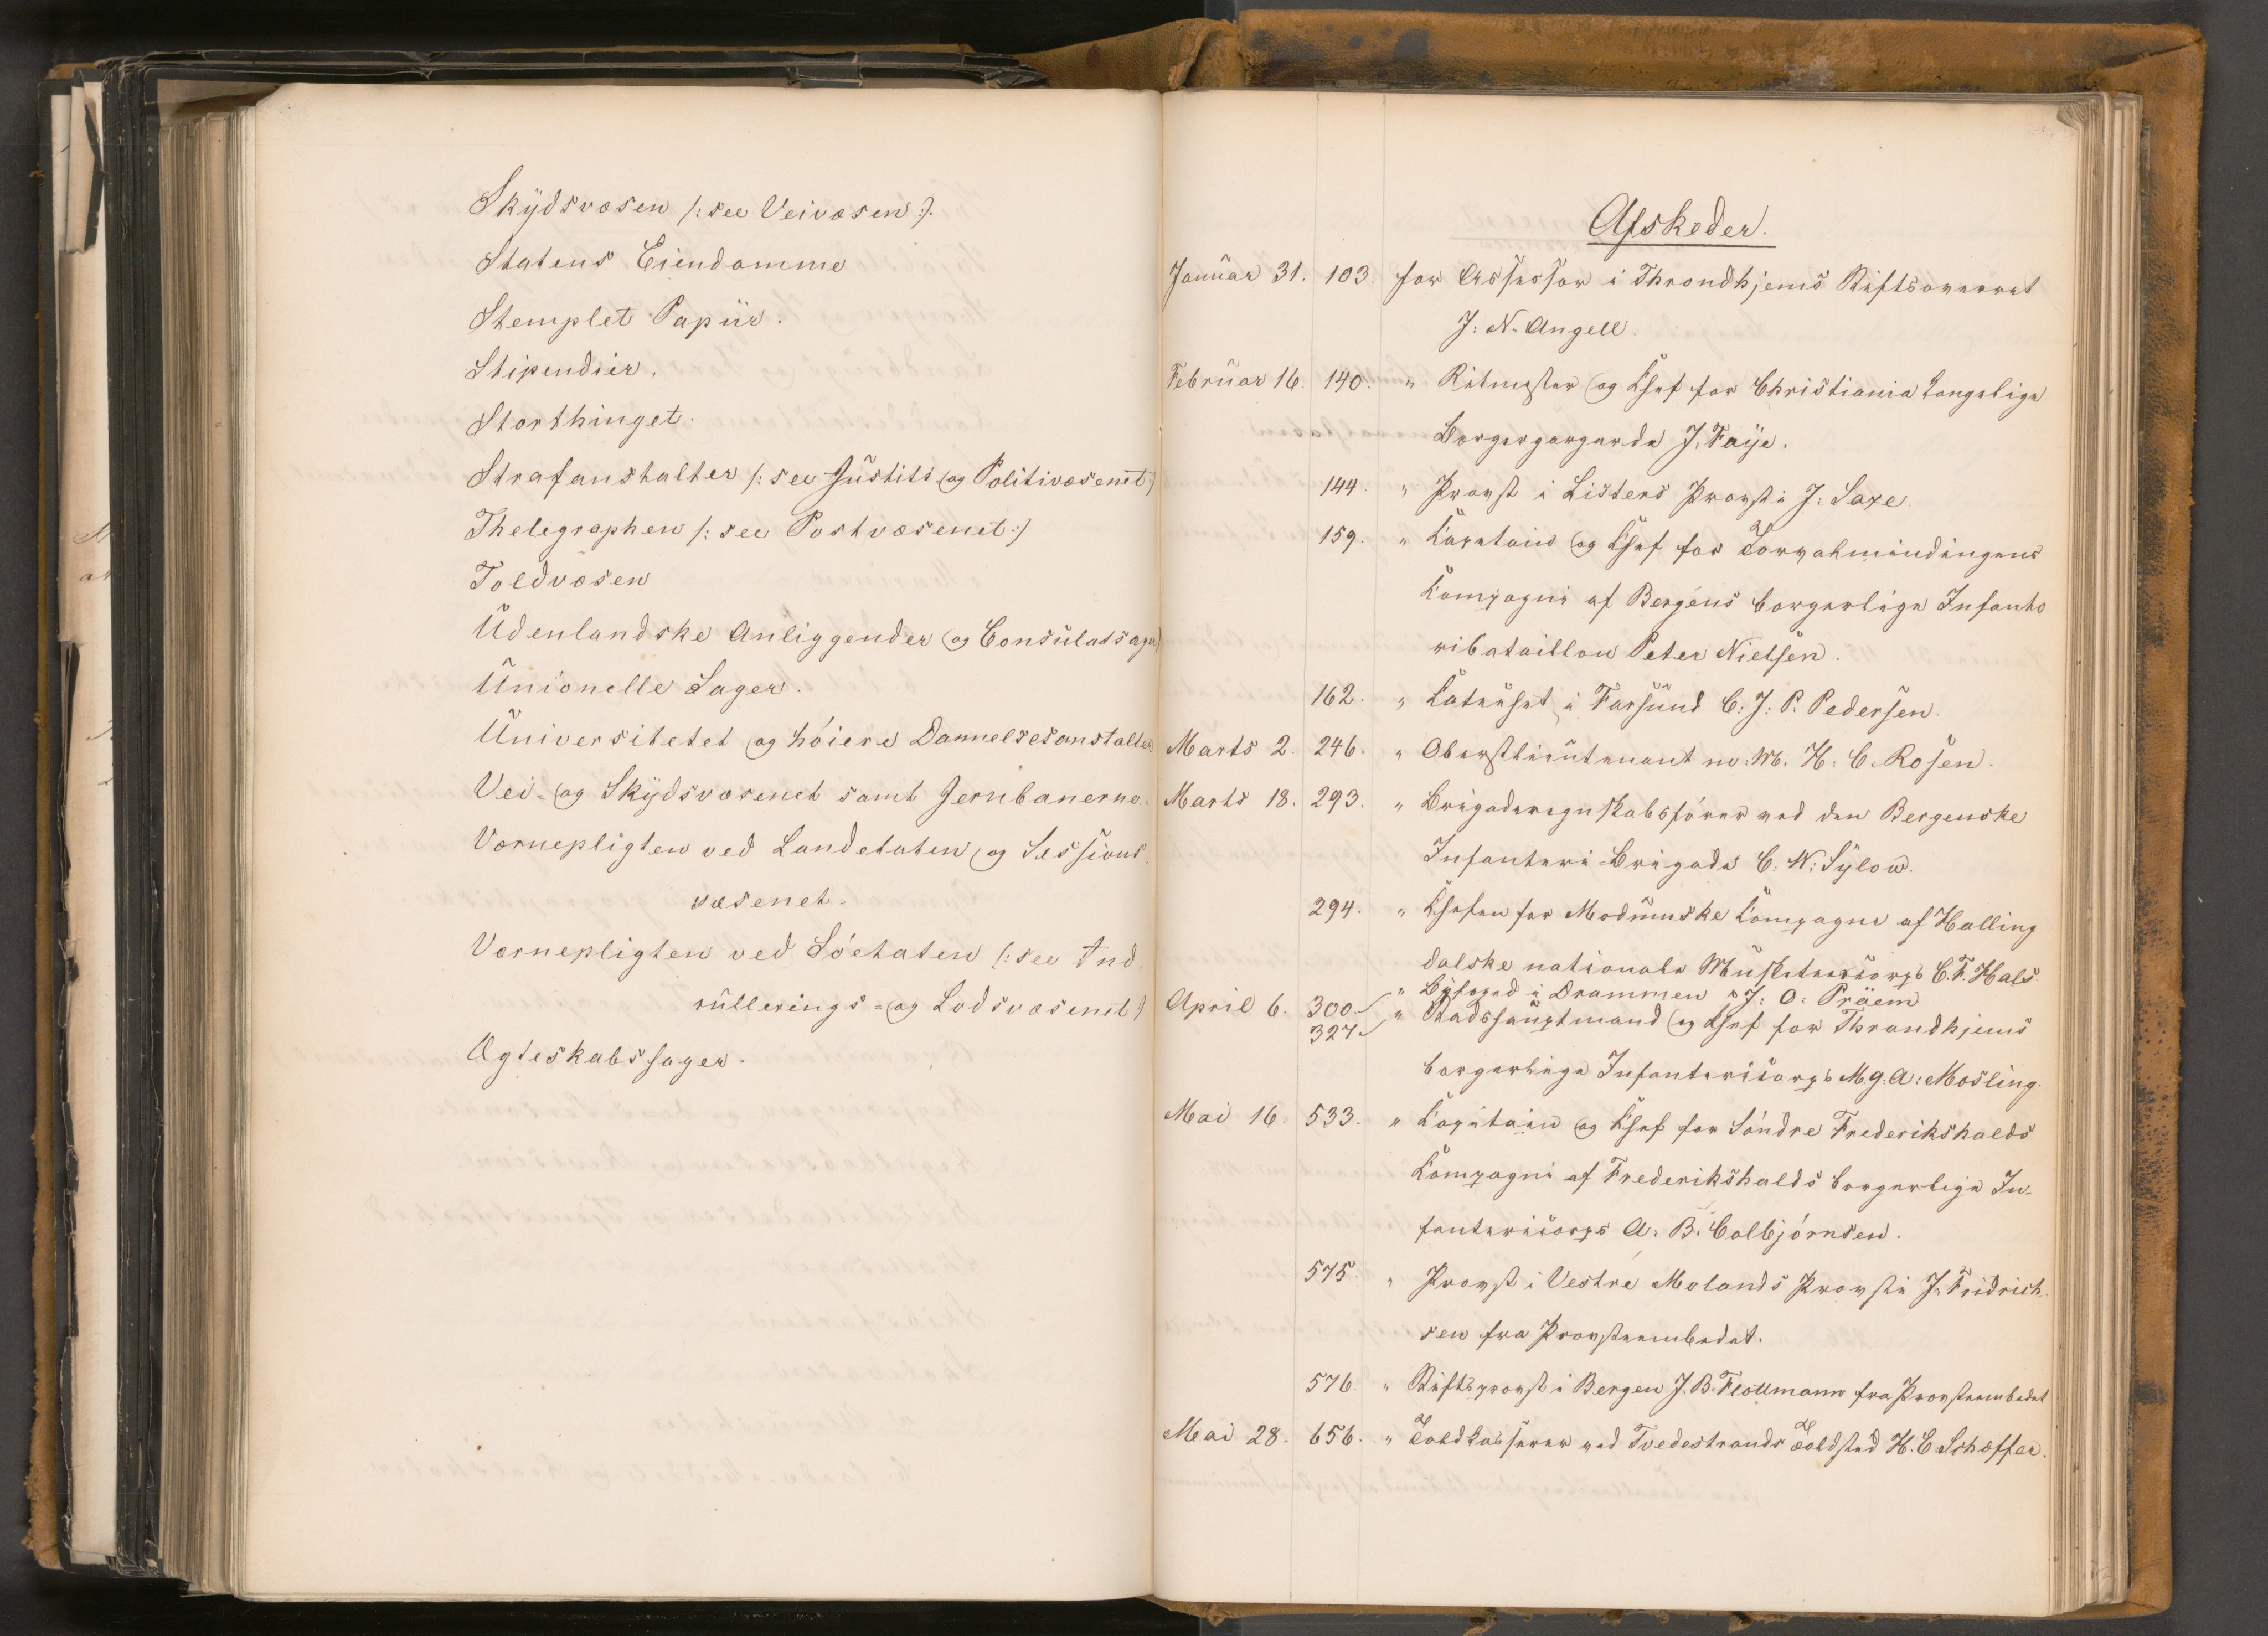 Skÿdsvæsen /: see Veivæsen :/.
Statens Eiendomme
Stemplet Papiir.
Stipendier.
Storthinget.
Strafanstalter /: see Justits og Politivæsenet /
Thelegraphen /: see Postvæsenet :/
Toldvæsen
Udenlandske Anliggender og Consulatsager
Unionelle Sager.
Universitetet og höiere Dannelsesanstalter
Vei- og Skÿdsvæsenet samt Jernbanerne.
Værnepligten ved Landetaten og Sessions
væsenet.
Værnepligten ved Söetaten /: see Ind
rullerings- og Lodsvæsenet /
Ægteskabssager.
Afskeder.
Januar 31. 103. for Assessor i Throndhjems Stiftsoverret
J. N. Angell.
Februar 16. 140. " Ritmester og Chef for Christiania
Borger J. Faÿe.
144. " Provst i Listers Provsti J. Saxe
159. " Capitain og Chef for Torvalmindingens
Compagni af Bergens borgerlige Infante
ribataillon Peter Nielsen.
162. " i Farsund C. J. P. Pedersen.
Marts 2. 246. " Oberstlieutenant m. M. H. C. Rosen.
Marts 18. 293. " Brigaderegnskabsförer ved den Bergenske
Infanteri-Brigade C. N. Sÿlow.
294. " Chefen for Modumske Compagni af Halling
dalske nationale Musketeercorps C. F. Hals.
" Bÿfoged i Drammen J. O. Präem
April 6. 300
327 " Stadshauptmand og Chef for Throndhjems
borgerlige Infantericorps M. G. A. Mosling.
Mai 16. 533. " Capitain og Chef for Söndre Frederikshalds
Compagni af Frederikshalds borgerlige In-
fantericorps A. B. Colbjörnsen.
575. " Provst i Vestre Molands Provsti J. Fridrich
sen fra Provsteembedet.
576. " Stiftsprovst i Bergen J. B. Flottmann fra Provsteembedet
Mai 28. 656. " Toldkasserer ved Tvedestrands Toldsted H. E. Schæffer.